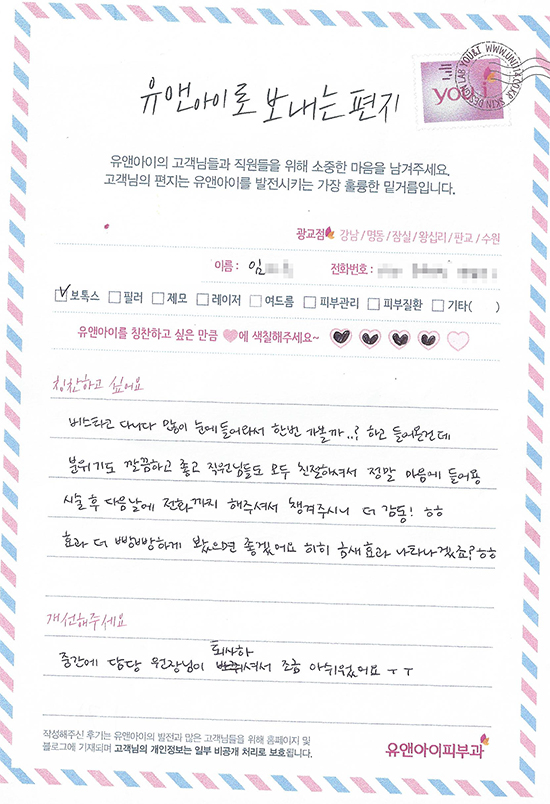 유앤아이로 보내는 편지
you&i
LAB YOU&I WWW.UNI114.CO.KR SKIN DESIGN
유앤아이의 고객님들과 직원들을 위해 소중한 마음을 남겨주세요.
고객님의 편지는 유앤아이를 발전시키는 가장 훌륭한 밑거름입니다.
광교점 강남 / 명동 / 잠실 / 왕십리 / 판교 / 수원
이름 : 임 전화번호 :
보톡스 필러 제모 레이저 여드름 피부관리 피부질환 기타( )
유앤아이를 칭찬하고 싶은 만큼 에 색칠해주세요~
칭찬하고 싶어요
버스타고 다니다 많이 눈에들어와서 한번 가볼까..? 하고 들어온건데
분위기도 깔끔하고 좋고 직원님들도 모두 친절하셔서 정말 마음에 들어용
시술 후 다음날에 전화까지 해주셔서 챙겨주시니 더 감동! ㅎㅎ
효과 더 빵빵하게 봤으면 좋겠어요 히히 금새효과 나타나겠죠?ㅎㅎ
개선해주세요
중간에 담당 원장님이 퇴사하셔서 조금 아쉬웠어요 ㅜㅜ
작성해주신 후기는 유앤아이의 발전과 많은 고객님들을 위해 홈페이지 및
블로그에 기재되며 고객님의 개인정보는 일부 비공개 처리로 보호됩니다.
유앤아이피부과